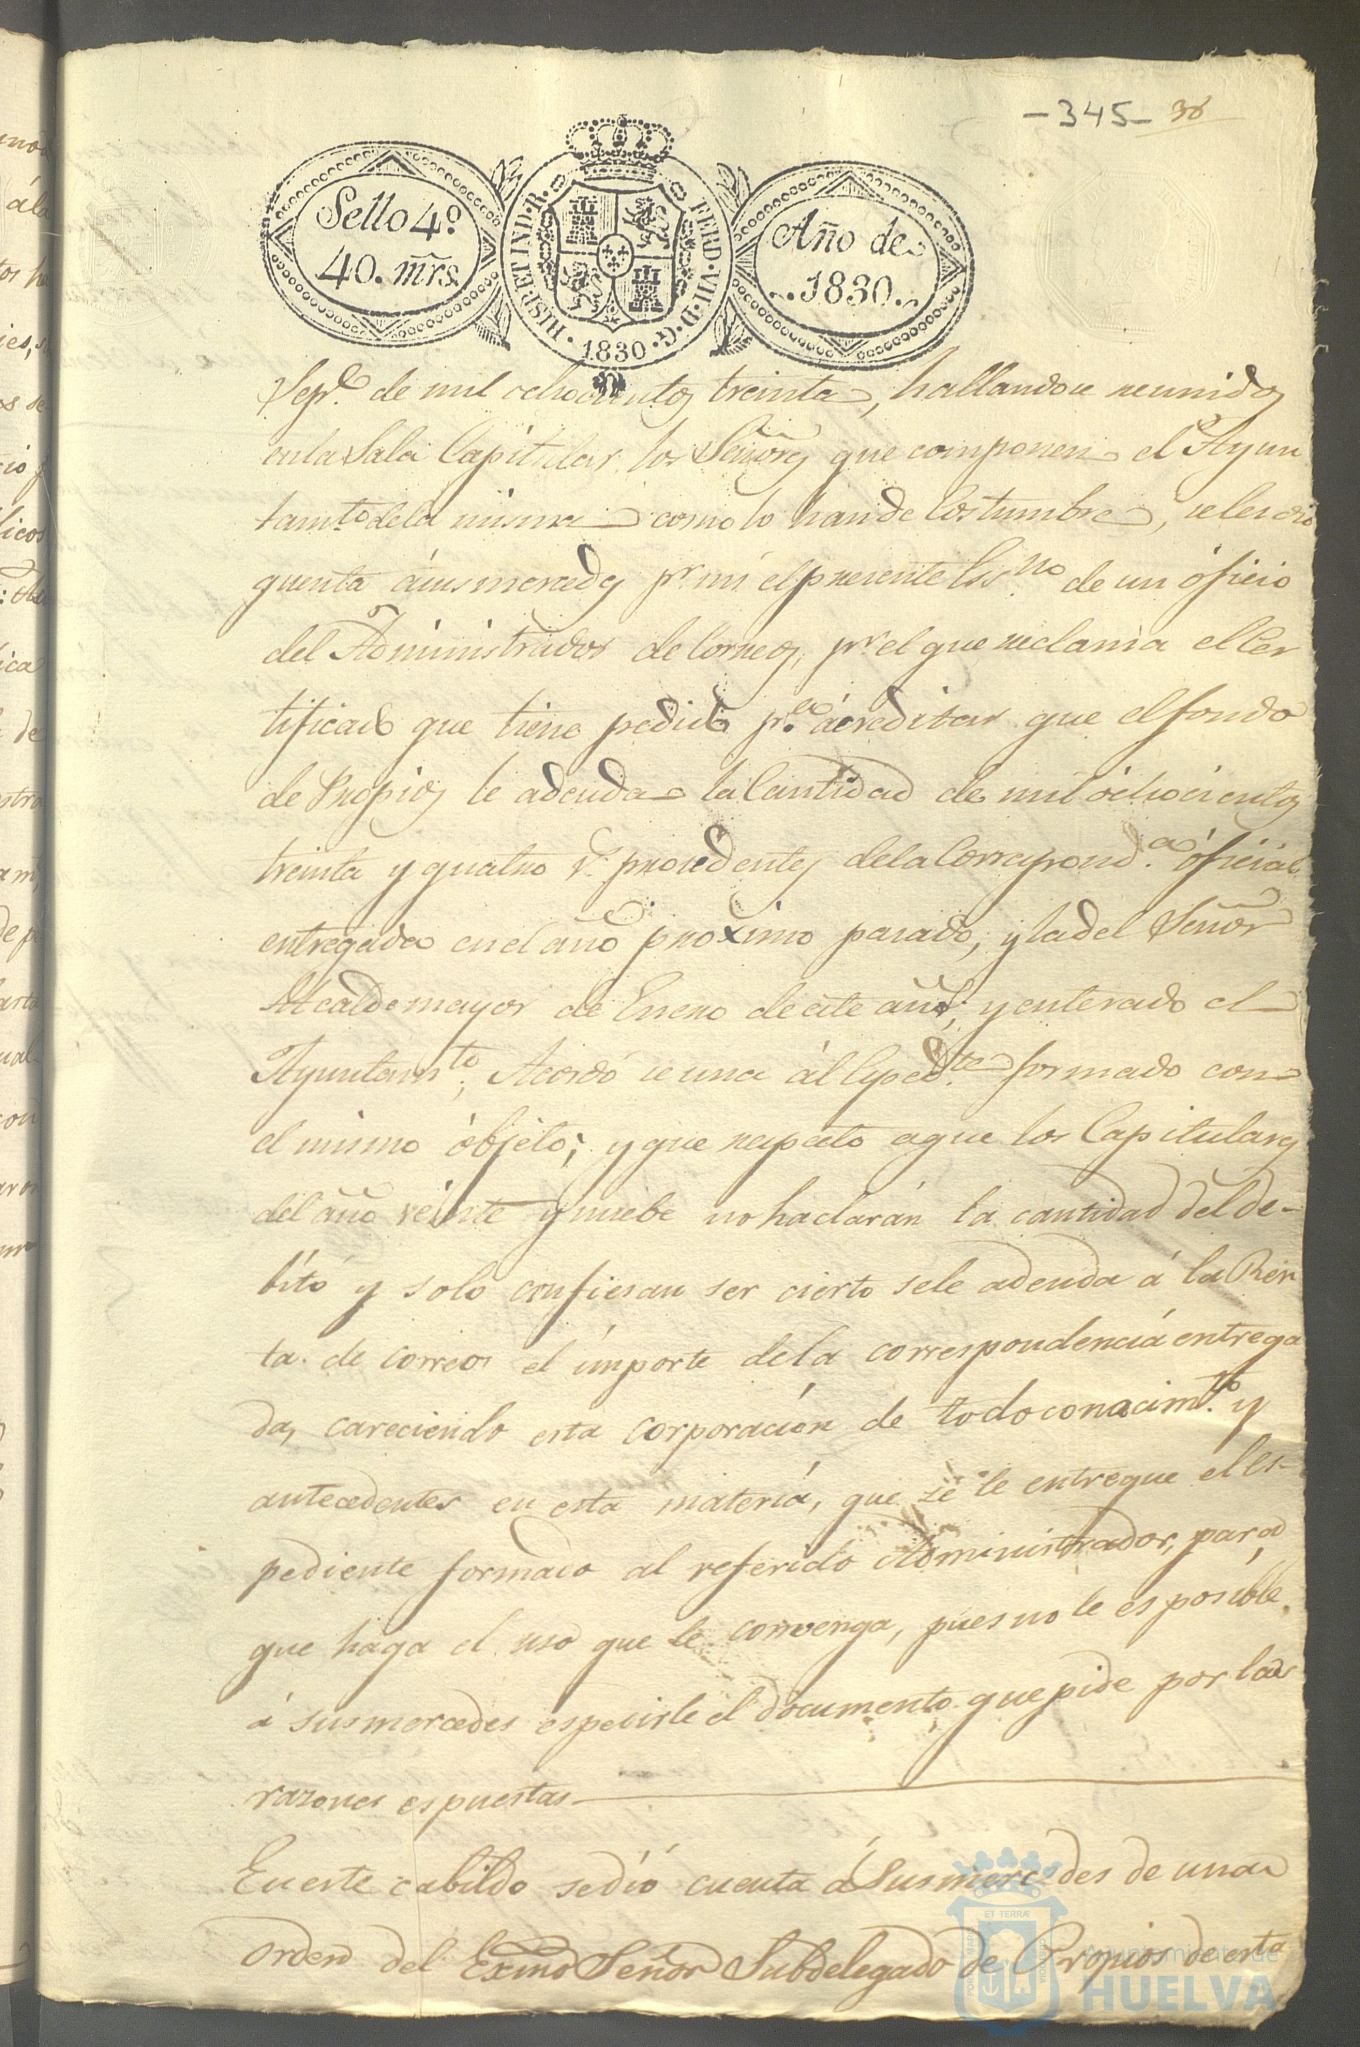 -345- 36
Sello 4º
40. mrs.
HISP. ET IND. R. FERD. VII. D. G. 1830
Año de
1830.
Sepre. de mil ochocientos treinta, hallandose reunidos
en la Sala Capitular los Señores que componen el Ayun
tamto. de la misma como lo han de Costumbre, se les dio
quenta á sus mercedes pr. mi el presente Essno. de un óficio
del Administrador de Correos, pr. el que reclama el Cer
tificado que tiene pedido pa. ácreditar que el fondo
de Propios le adeuda la Cantidad de mil óchocientos
treinta y quatro rs. procedentes de la Correspondа. óficial
entregada en el año proximo pasado, y la del Señor
Alcalde mayor de Enero de este año; y enterado el
Ayuntamto., Acordó se una ál Espedte. formado con
el mismo óbjeto; y que respecto a que los Capitulares
del año veinte y nuebe no haclarán la cantidad del de-
bito y solo confiesan ser cierto se le adeuda á la Ren
ta de correos el importe de la correspondencia entrega
da, careciendo esta corporacion de todo conacimto. y
antecedentes en esta materia, que se le entregue el Es-
pediente formado al referido Administrador, para
que haga el uso que le convenga, pues no le es posible
á sus mercedes espedirle el documento que pide por las
razones espuestas
En este cabildo se dió cuenta á Sus mercedes de una
Orden del Exmo Señor Subdelegado de Propios de esta
ET TERRÆ
Ayuntamiento de
HUELVA